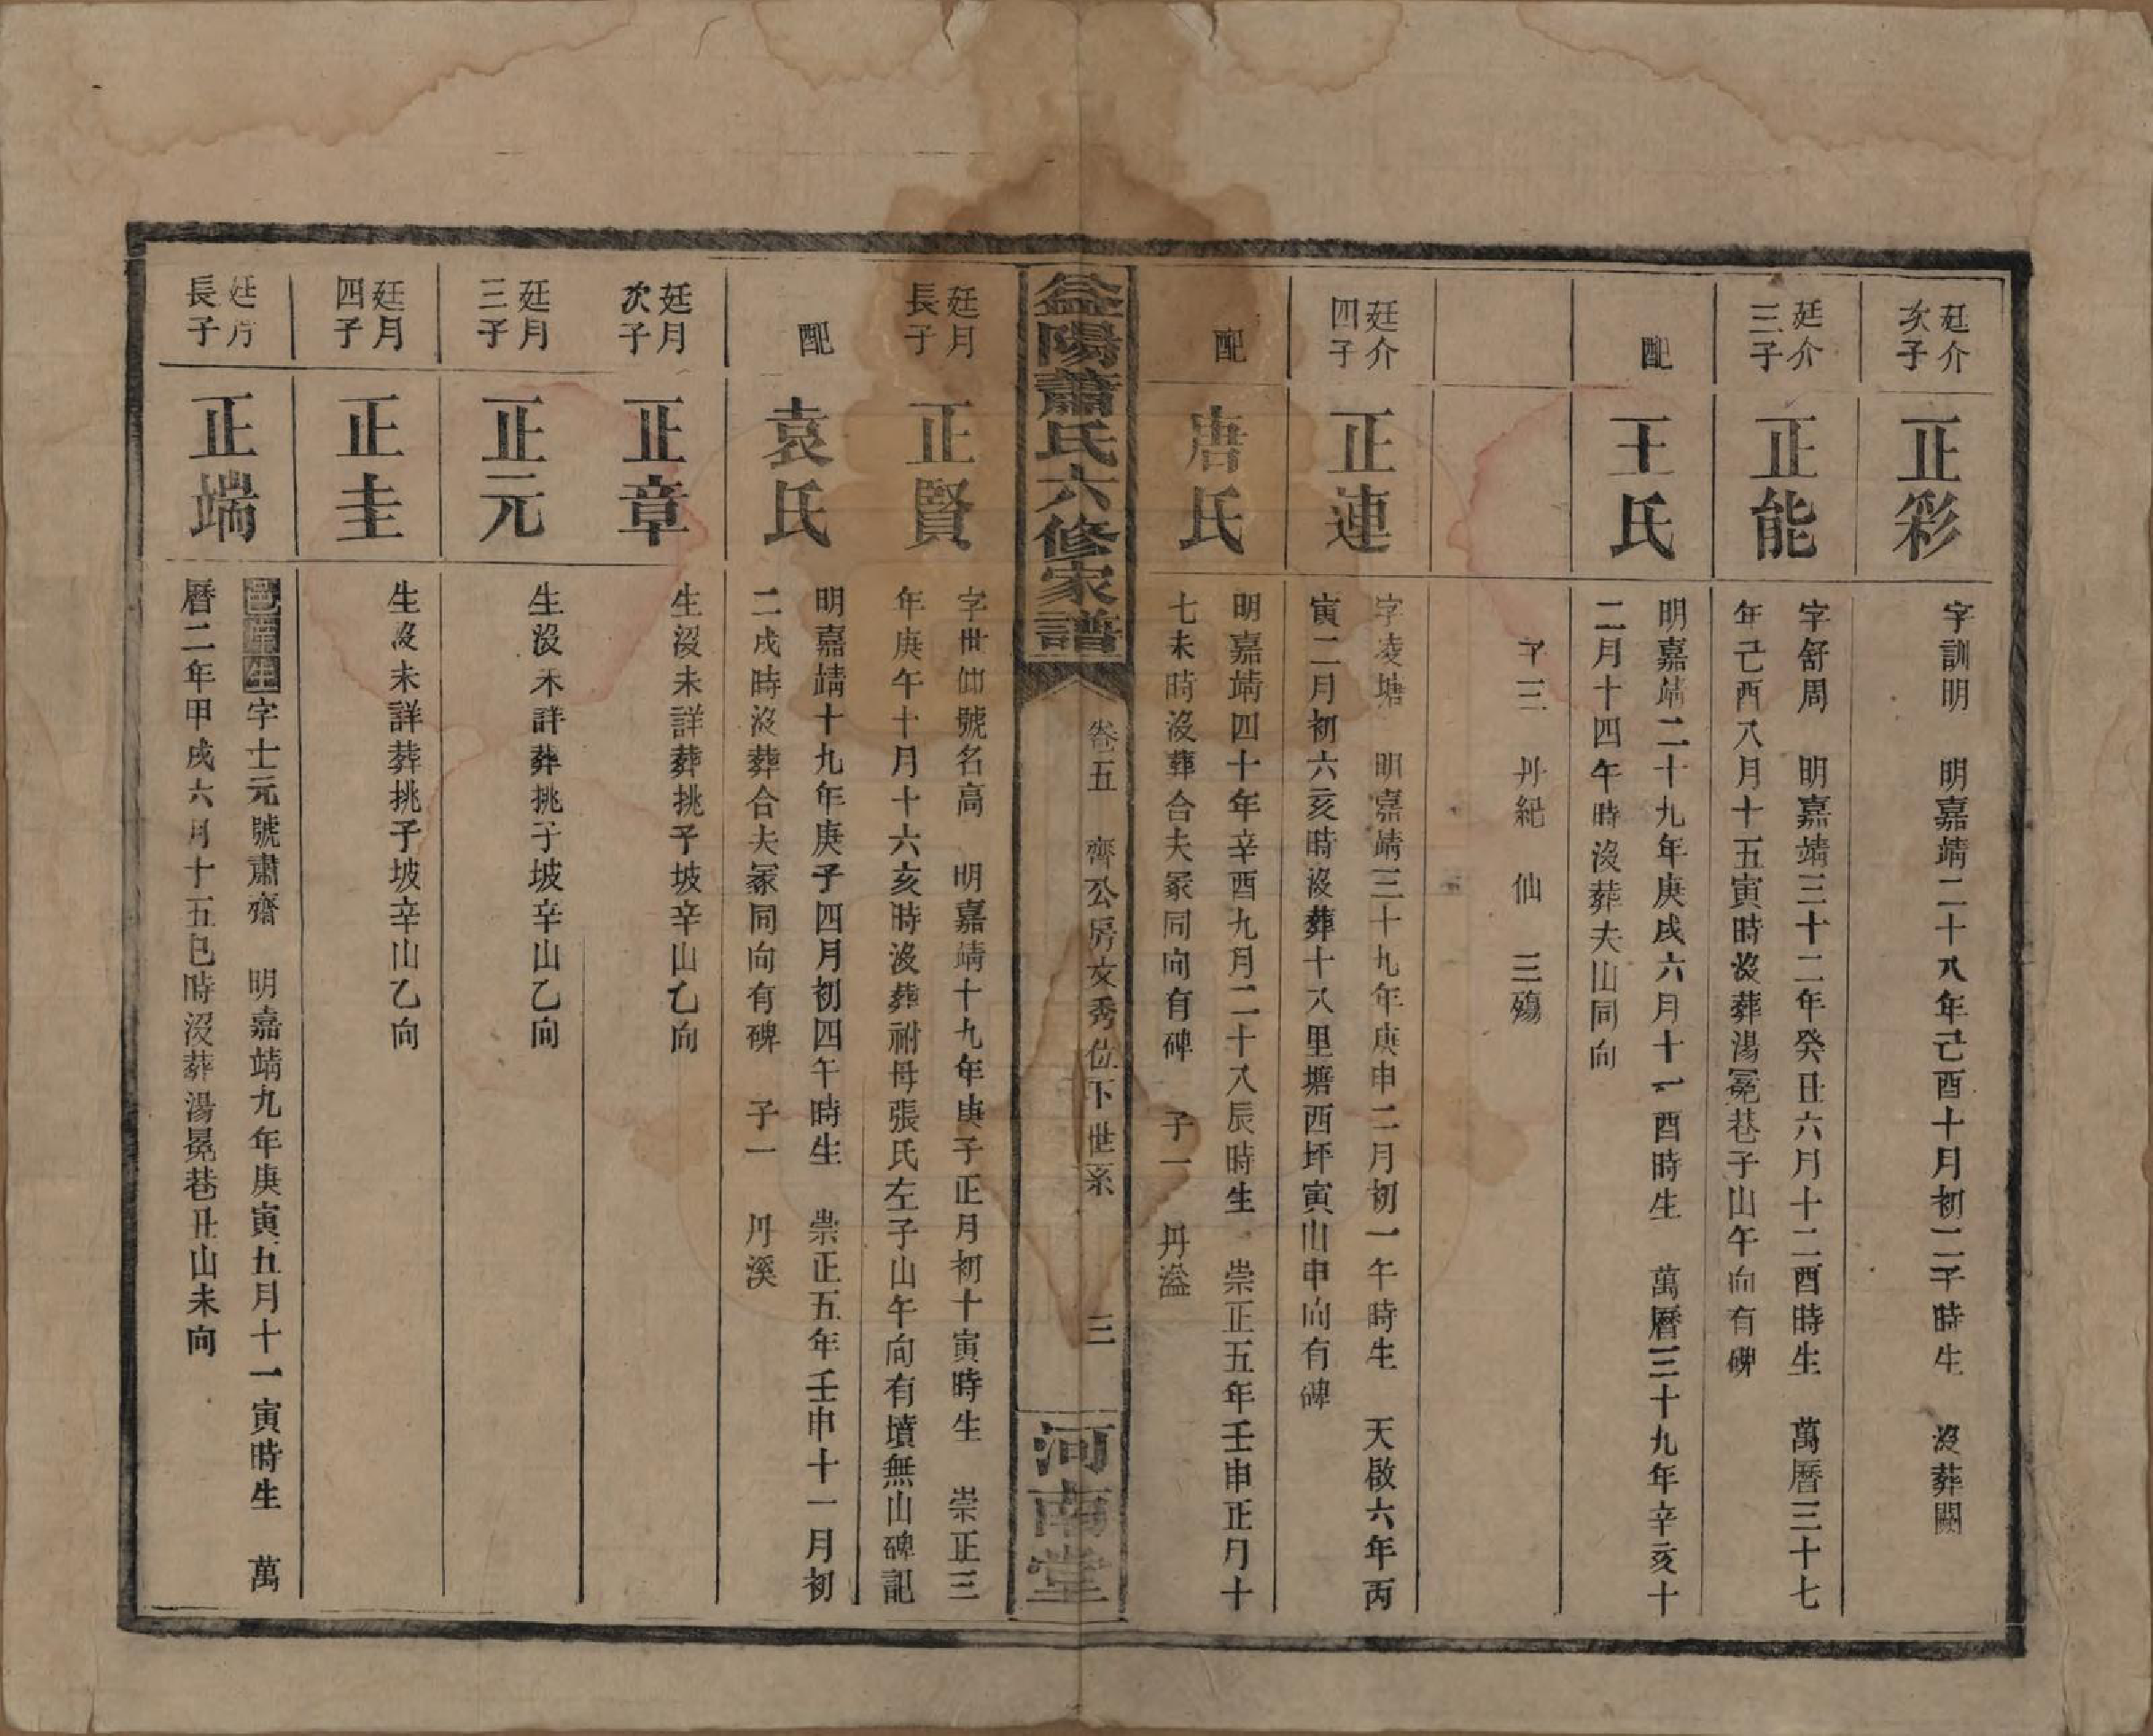 廷介
次子
正彩
字訓明　明嘉靖二十八年己酉十月初二子時生　沒葬闕
廷介
三子
正能
字舒周　明嘉靖三十二年癸丑六月十二酉時生　萬曆三十七
年己酉八月十五寅時沒葬湯冕巷子山午向有碑
配
王氏
明嘉靖二十九年庚戌六月十一酉時生　萬曆三十九年辛亥十
二月十四午時沒葬夫山同向
子三　丹紀　仙　三殤
廷介
四子
正連
字凌塘　明嘉靖三十九年庚申二月初一午時生　天啟六年丙
寅二月初六亥時沒葬十八里塘西坪寅山申向有碑
配
唐氏
明嘉靖四十年辛酉九月二十八辰時生　崇正五年壬申正月十
七未時沒葬合夫冢同向有碑　子一　丹溢
益陽蕭氏六修家譜
卷五　齊公房文秀位下世系　三
河南堂
廷月
長子
正賢
字世仰號名高　明嘉靖十九年庚子正月初十寅時生　崇正三
年庚午十月十六亥時沒葬祔母張氏左子山午向有墳無山碑記
配
袁氏
明嘉靖十九年庚子四月初四午時生　崇正五年壬申十一月初
二戌時沒葬合夫冢同向有碑　子一　丹溪
廷月
次子
正章
生沒未詳葬挑子坡辛山乙向
廷月
三子
正元
生沒未詳葬挑子坡辛山乙向
廷月
四子
正圭
生沒未詳葬挑子坡辛山乙向
廷方
長子
正端
邑庠生字士元號肅齋　明嘉靖九年庚寅五月十一寅時生　萬
曆二年甲戌六月十五巳時沒葬湯冕巷丑山未向